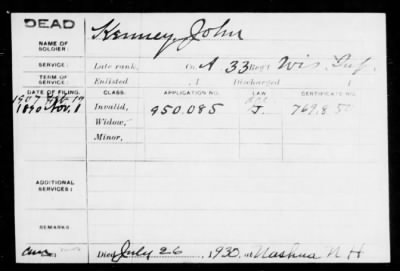 DEAD
NAME OF SOLDIER:
Kenney, John
SERVICE:
Late rank, Co. A 33 Reg't Wis. Inf.
TERM OF SERVICE:
Enlisted , 1 Discharged , 1
DATE OF FILING. CLASS. APPLICATION NO. LAW CERTIFICATE NO.
1907
1890 Nov. 1 Invalid, 950.085 J. 769.850
Widow,
Minor,
ADDITIONAL SERVICES:
REMARKS
Died July 26, 1930, at Nashua N H